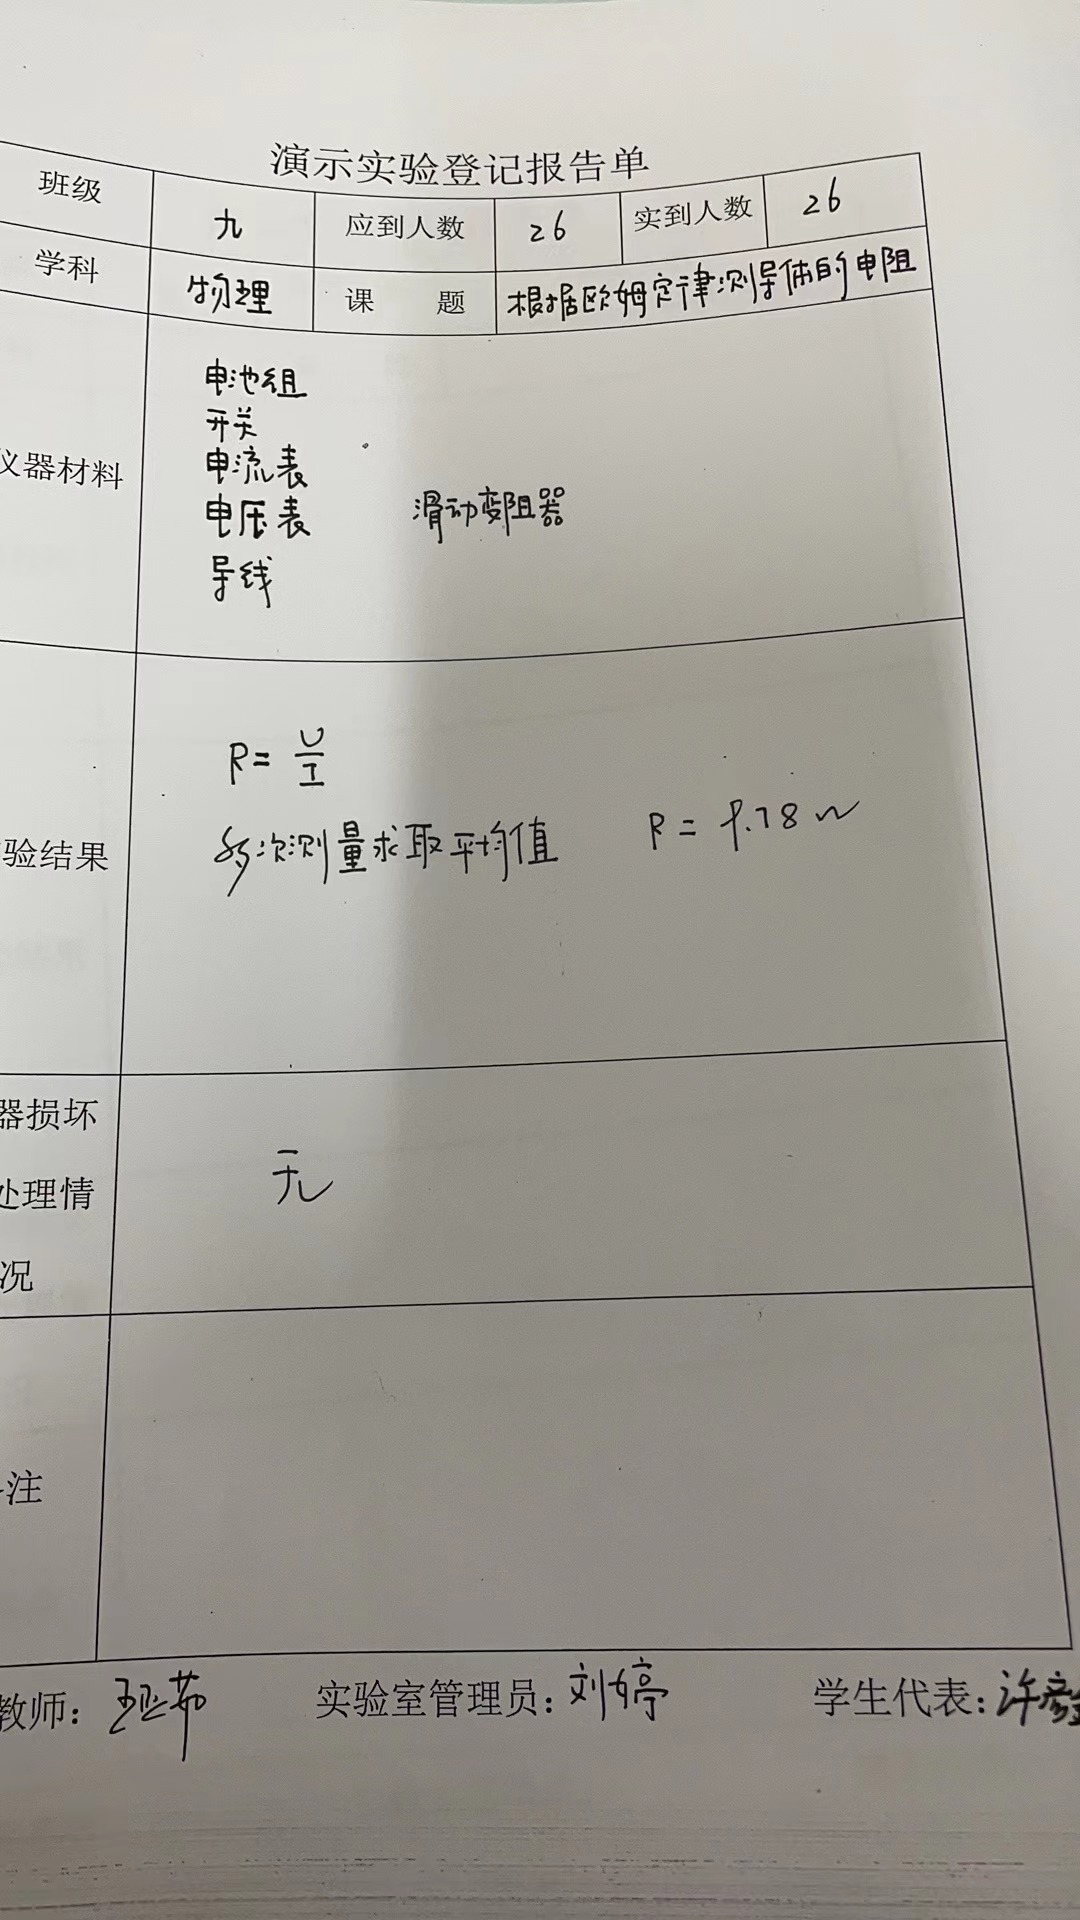 演示实验登记报告单
班级 九 应到人数 26 实到人数 26
学科 物理 课 题 根据欧姆定律测导体的电阻
仪器材料
电池组
开关
电流表
电压表 滑动变阻器
导线
验结果
R= U/I
多次测量求取平均值 R = 9.78 Ω
器损坏
处理情
况
无
注
教师: 实验室管理员: 刘婷 学生代表: 许